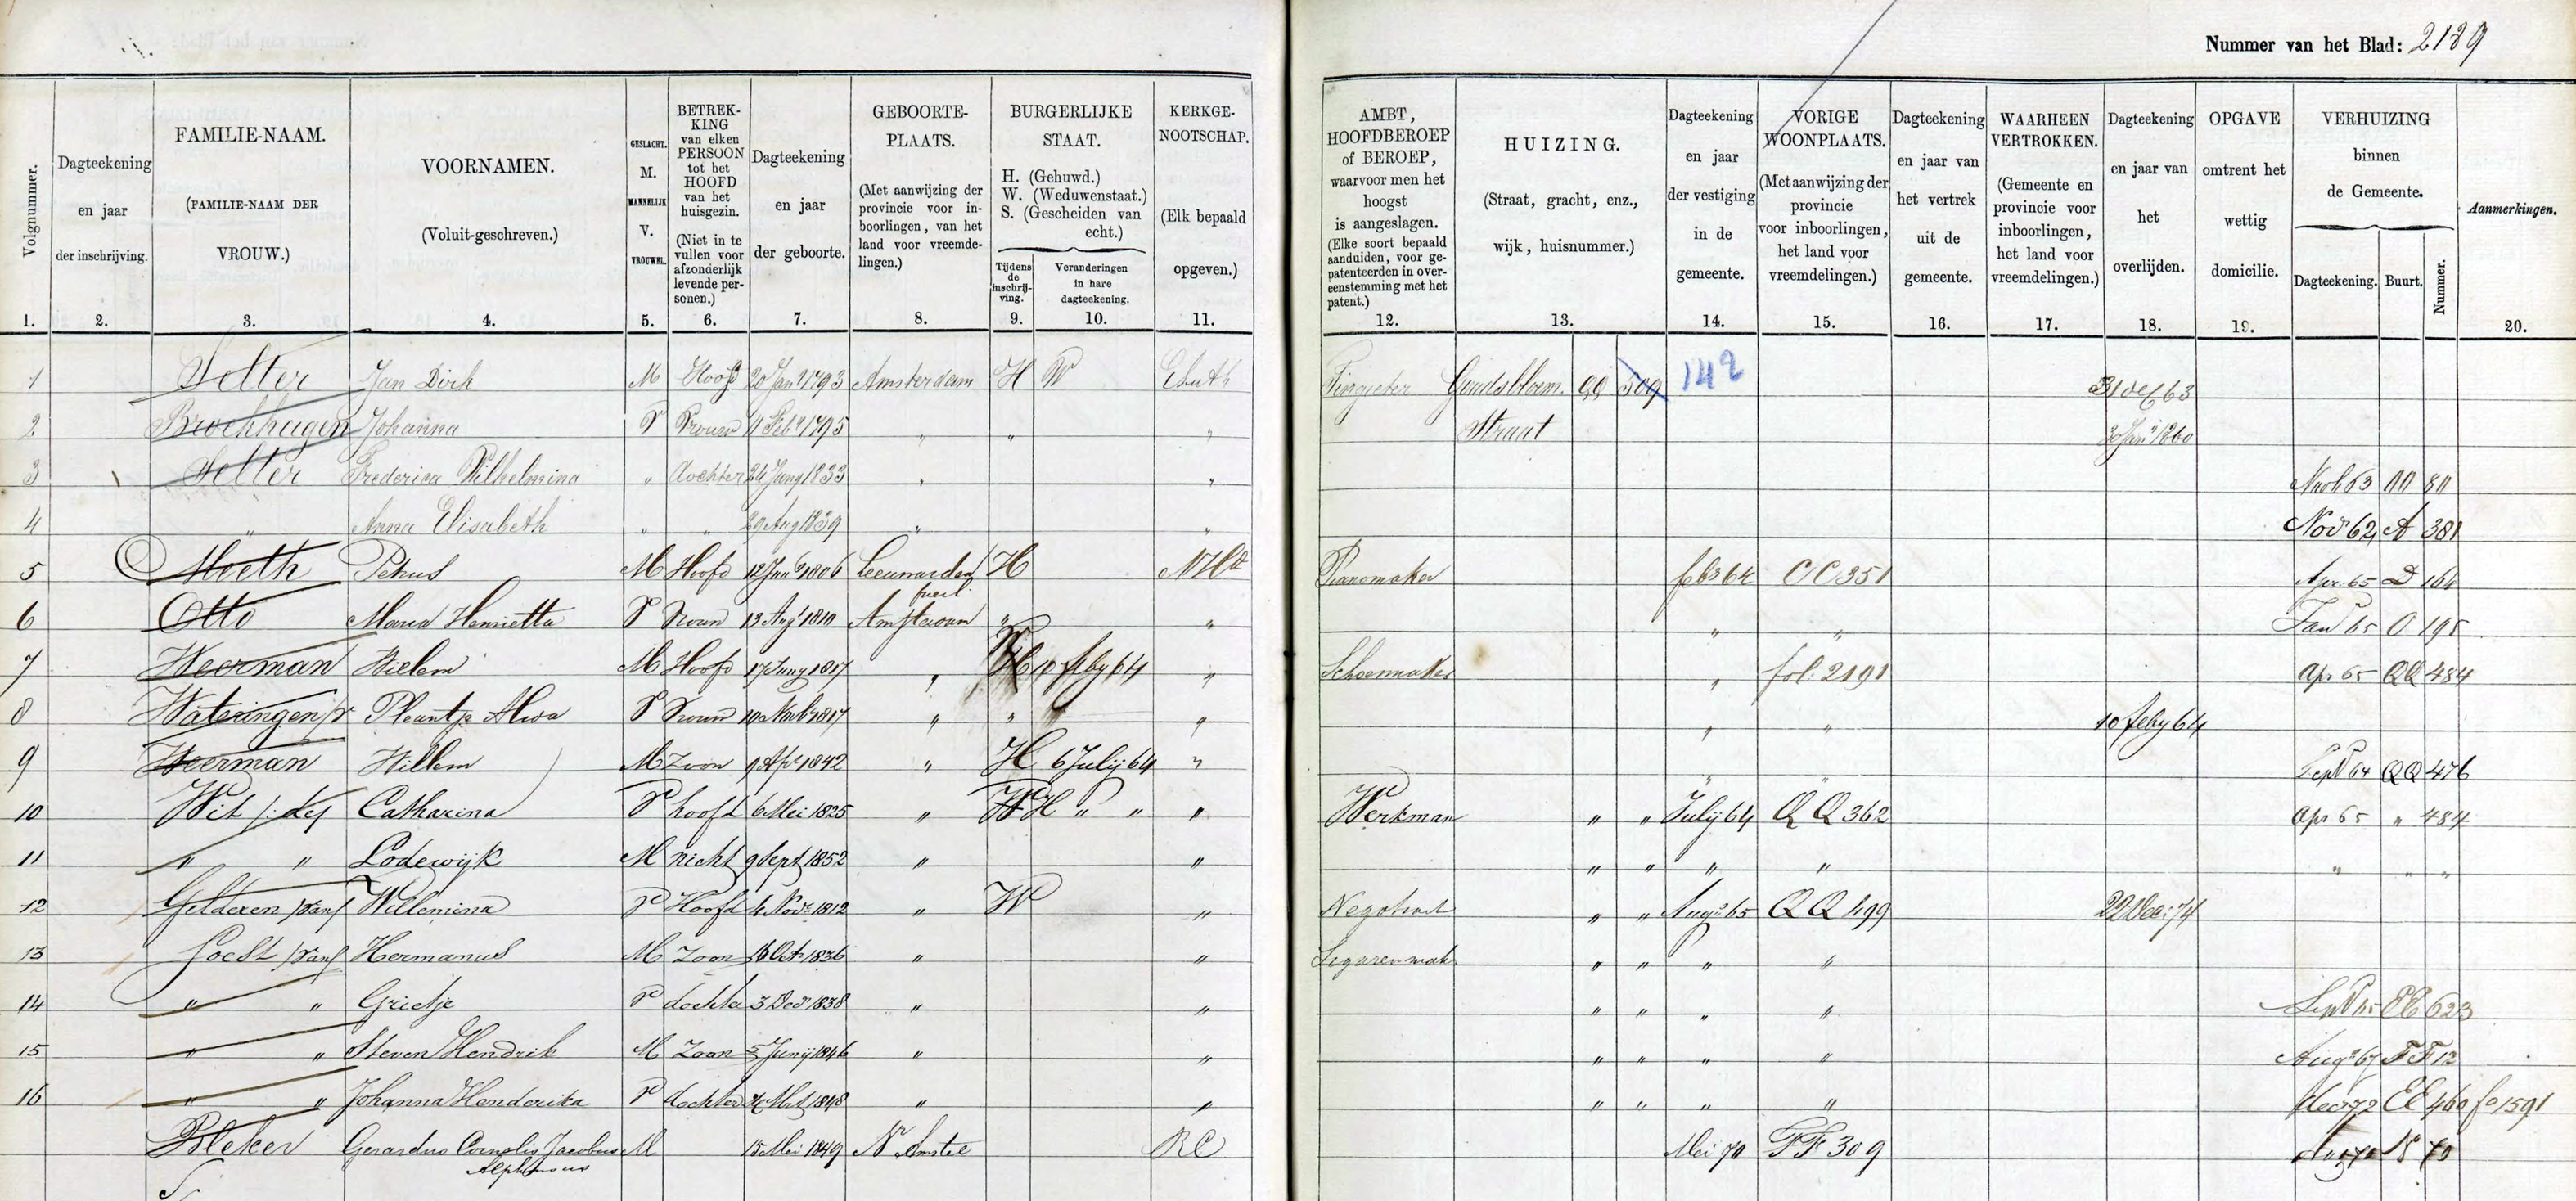 Nummer van het Blad: 2189
Volgnummer.
Dagteekening en jaar der inschrijving.
FAMILIE-NAAM.
(FAMILIE-NAAM DER VROUW.)
VOORNAMEN.
(Voluit-geschreven.)
GESLACHT. M. MANNELIJK V. VROUWEL.
BETREK-KING van elken PERSOON tot het HOOFD van het huisgezin.
(Niet in te vullen voor afzonderlijk levende per-sonen.)
Dagteekening en jaar der geboorte.
GEBOORTE-PLAATS.
(Met aanwijzing der provincie voor in-boorlingen, van het land voor vreemde-lingen.)
BURGERLIJKE STAAT.
H. (Gehuwd.)
W. (Weduwenstaat.)
S. (Gescheiden van echt.)
Tijdens de inschrij-ving.
Veranderingen in hare dagteekening.
KERKGE-NOOTSCHAP.
(Elk bepaald opgeven.)
AMBT, HOOFDBEROEP of BEROEP, waarvoor men het hoogst is aangeslagen.
(Elke soort bepaald aanduiden, voor ge-patenteerden in over-eenstemming met het patent.)
HUIZING.
(Straat, gracht, enz., wijk, huisnummer.)
Dagteekening en jaar der vestiging in de gemeente.
VORIGE WOONPLAATS.
(Met aanwijzing der provincie voor inboorlingen, het land voor vreemdelingen.)
Dagteekening en jaar van het vertrek uit de gemeente.
WAARHEEN VERTROKKEN.
(Gemeente en provincie voor inboorlingen, het land voor vreemdelingen.)
Dagteekening en jaar van het overlijden.
OPGAVE omtrent het wettig domicilie.
VERHUIZING binnen de Gemeente.
Dagteekening. Buurt. Nummer.
Aanmerkingen.
1. 2. 3. 4. 5. 6. 7. 8. 9. 10. 11. 12. 13. 14. 15. 16. 17. 18. 19. 20.
1 Setter Jan Dirk M Hoofd 20 Jan 1793 Amsterdam H W Tingieter Goudsbloem. QQ 509 142 31 Dec 63
2 Brockhagen Johanna V Vrouw 11 Feb 1795 " " " Straat 30 Jan 1860
3 Setter Frederica Wilhelmina " dochter 24 Juny 1833 " "
4 " Anna Elisabeth " " 29 Aug 1839 " " Nov 62 A 381
5 Petrus M Hoofd 12 Jan 1806 Leeuwarden H Pianomaker feb 64 CC 351 Apr 65 D 164
6 Otto Maria Henrietta V Vrouw 13 Aug 1810 " " " " O 195
7 Weerman Willem M Hoofd 17 Juny 1817 " W H 10 feby 64 " Schoenmaker " fol. 2191 Apr 65 QQ 484
8 Wateringen v Pleuntje V Vrouw 1817 " " " " " 10 feby 64
9 Weerman Willem M Zoon 9 Apr 1842 " H 6 Julij 64 " " " Sept 64 QQ 476
10 Wit /:de/ Catharina V hoofd 6 Mei 1825 " W H " " " Werkman " " Julij 64 QQ 362 Apr 65 " 484
11 " " Lodewijk M nicht 9 Sept 1852 " " " " " " " " "
12 Gelderen /van/ Willemina V Hoofd 4 Nov 1812 " W " " " Aug 65 QQ 499 22 Dec: 74
13 Soest /van/ Hermanus M Zoon 16 Oct 1836 " " Sigarenmak " " " "
14 " " Grietje V dochter 3 Dec 1838 " " " " " " Sept 65 623
15 " " Steven Hendrik M Zoon 5 Junij 1846 " " " " " " Aug 67 FF 12
16 " " Johanna Henderika V dochter 1848 " " " " " " Dec 72 EE 460 fo 1591
Bleker Gerardus Cornelis Jacobus Alphonsus M 15 Mei 1849 Nr Amstel RC Mei 70 FF 309